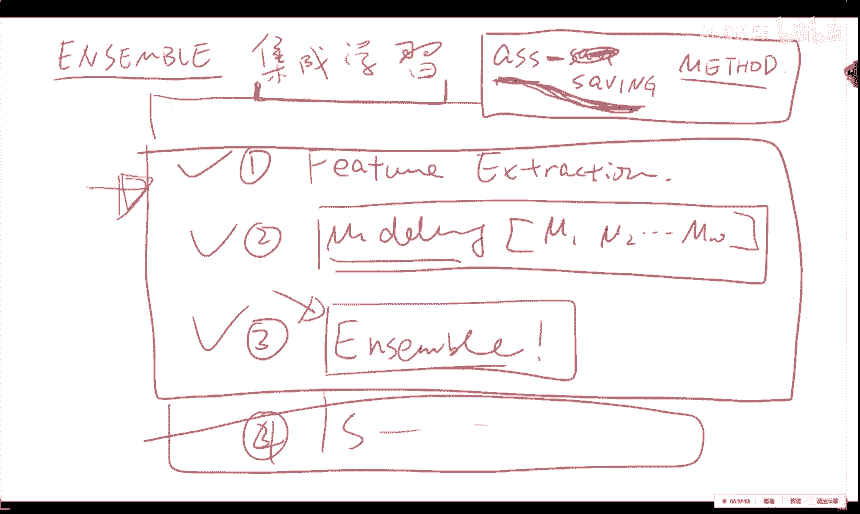 ENSEMBLE 集成学習
ass-saving METHOD
① Feature Extraction.
② Modeling [M₁ M₂ ... M₁₀]
③ Ensemble!
④ S